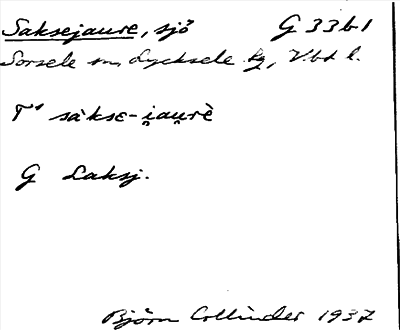 Saksejaure, sjö G 33 b 1
Sorsele sn, Lycksele lg, Vbt l.
T' sàksɛ-i̯au̯rè
G Laksj.
Björn Collinder 1937